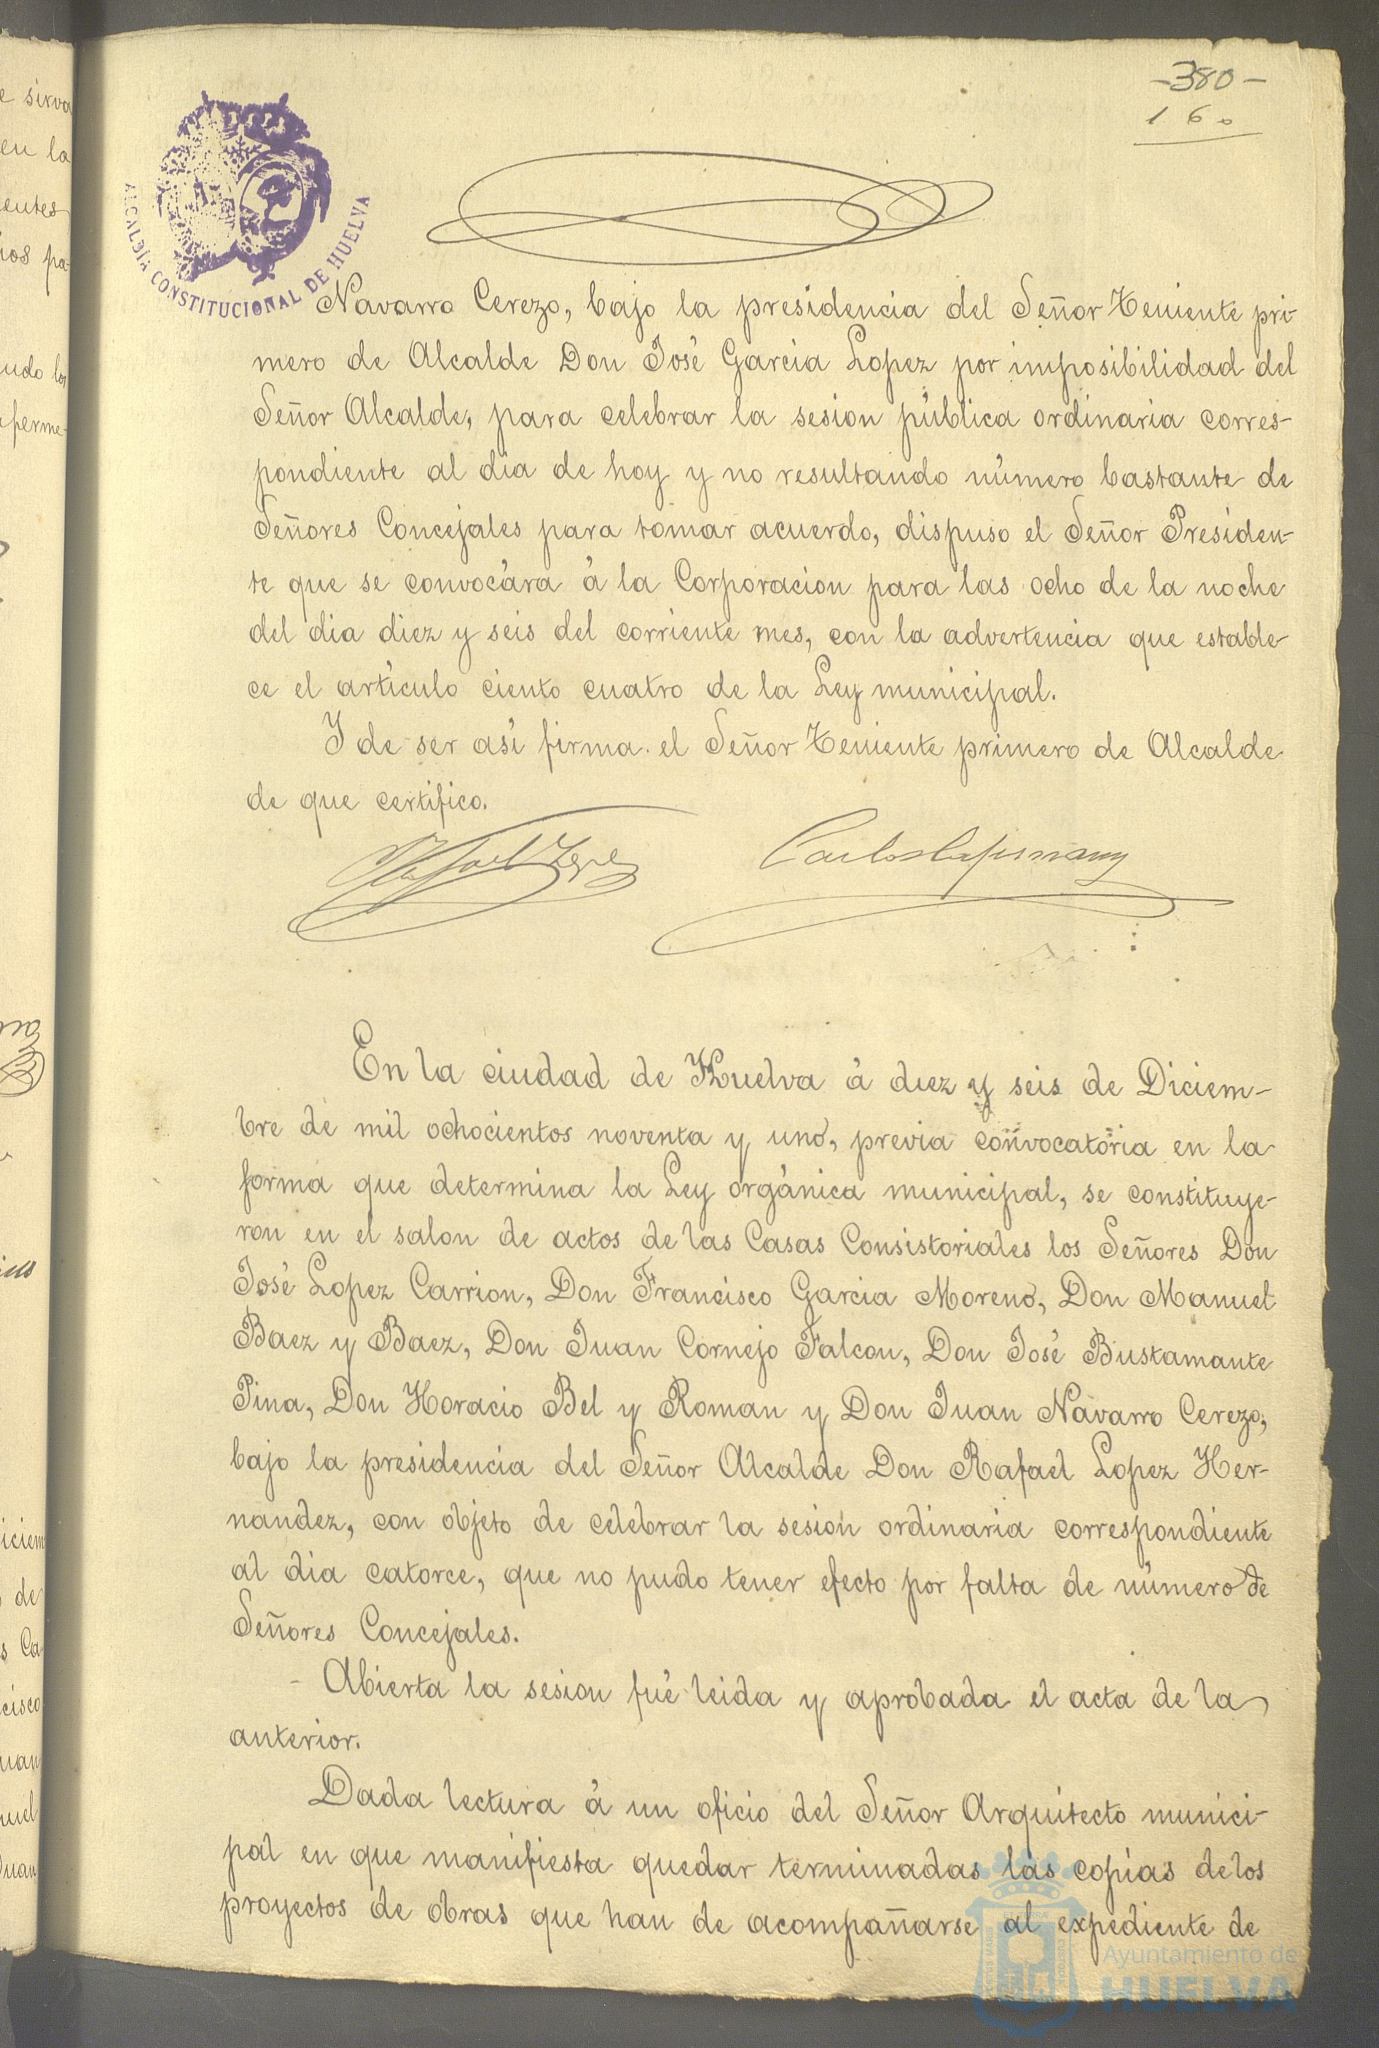 -380-
160
ALCALDÍA CONSTITUCIONAL DE HUELVA
Navarro Cerezo, bajo la presidencia del Señor Teniente pri-
mero de Alcalde Don José Garcia Lopez por imposibilidad del
Señor Alcalde, para celebrar la sesion pública ordinaria corres-
pondiente al dia de hoy y no resultando número bastante de
Señores Concejales para tomar acuerdo, dispuso el Señor Presiden-
te que se convocára á la Corporacion para las ocho de la noche
del dia diez y seis del corriente mes, con la advertencia que estable-
ce el artículo ciento cuatro de la Ley municipal.
Y de ser así firma el Señor Teniente primero de Alcalde
de que certifico.
En la ciudad de Huelva á diez y seis de Diciem-
bre de mil ochocientos noventa y uno, previa convocatoria en la
forma que determina la Ley orgánica municipal, se constituye-
ron en el salon de actos de las Casas Consistoriales los Señores Don
José Lopez Carrion, Don Francisco Garcia Moreno, Don Manuel
Baez y Baez, Don Juan Cornejo Falcon, Don José Bustamante
Pina, Don Horacio Bel y Roman y Don Juan Navarro Cerezo,
bajo la presidencia del Señor Alcalde Don Rafael Lopez Her-
nandez, con objeto de celebrar la sesión ordinaria correspondiente
al dia catorce, que no pudo tener efecto por falta de número de
Señores Concejales.
- Abierta la sesion fué leida y aprobada el acta de la
anterior.
Dada lectura á un oficio del Señor Arquitecto munici-
pal en que manifiesta quedar terminadas las copias de los
proyectos de obras que han de acompañarse al expediente de
Ayuntamiento de
HUELVA